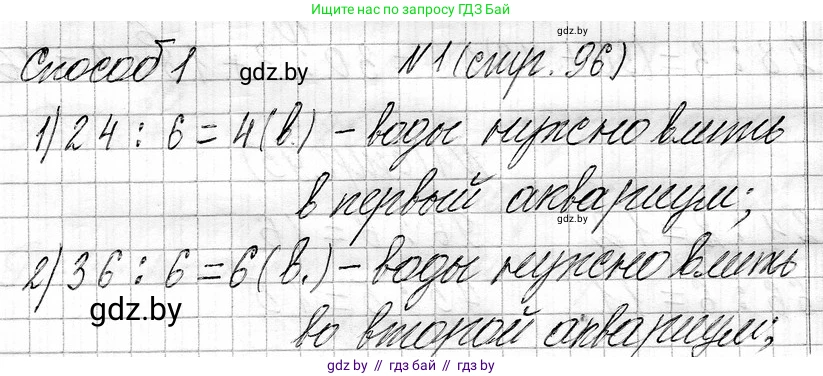 Ищите нас по запросу ГДЗ Бай
gdz.by
Способ 1 gdz.by №1 (стр. 96)
1) 24 : 6 = 4 (в.) - воды нужно влить
в первый аквариум;
gdz.by
2) 36 : 6 = 6 (в.) - воды нужно влить
gdz.by
во второй аквариум;
gdz.by // гдз бай // gdz by